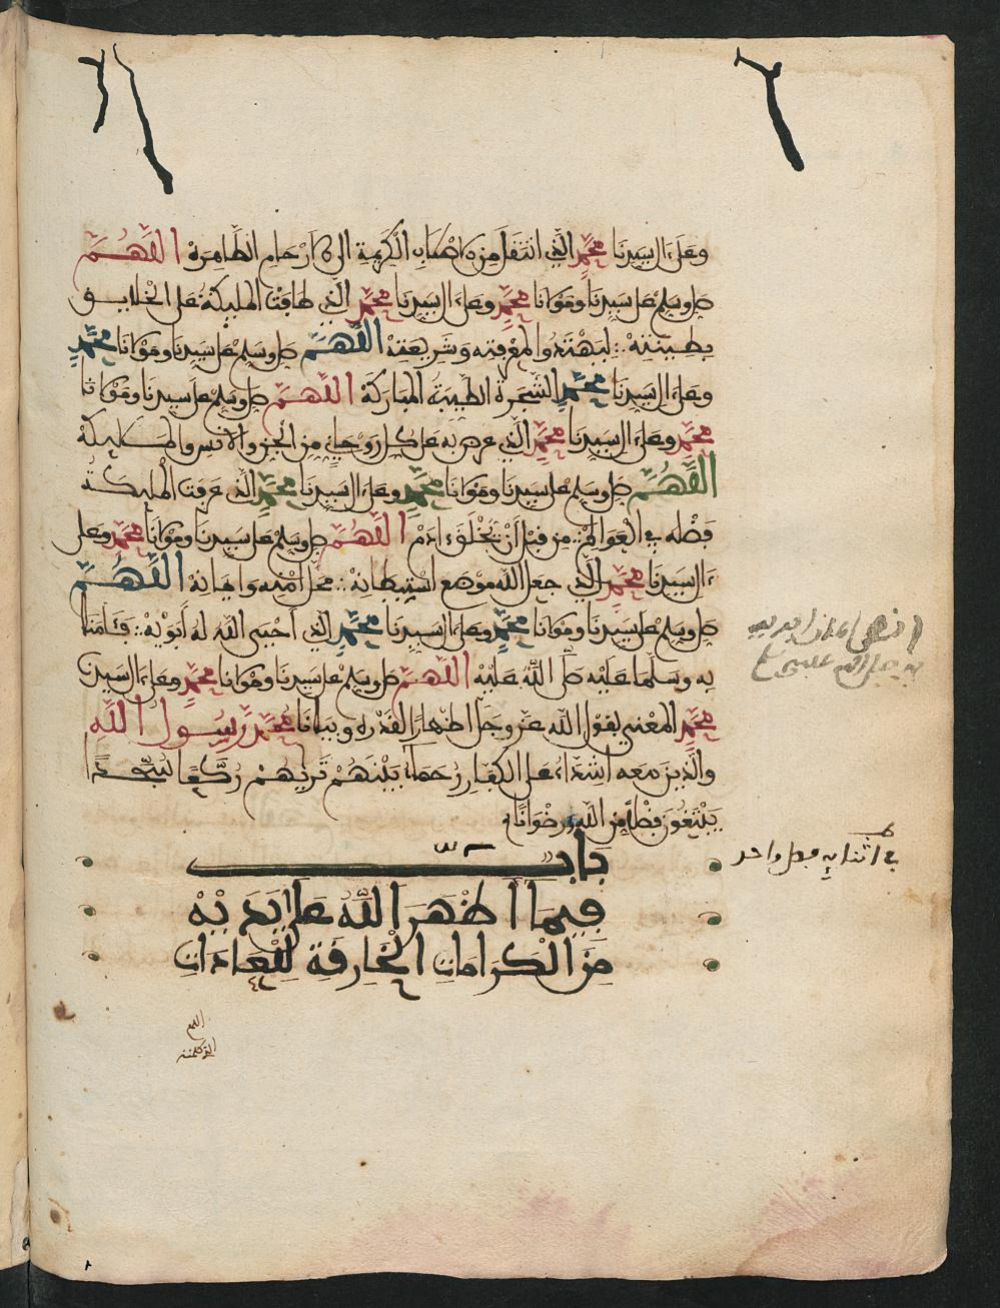 وعلى ءال سيدنا محمد الذي انتقل من الاصلاب الكريمة الى الارحام الطاهرة اللهم
صل وسلم على سيدنا ومولانا محمد وعلى ءال سيدنا محمد الذي طافت المليكة على الخلايق
بطينته لتهتدوا لمعرفته وشريعته اللهم صل وسلم على سيدنا ومولانا محمد
وعلى ءال سيدنا محمد الشجرة الطيبة المباركة اللهم صل وسلم على سيدنا ومولانا
محمد وعلى ءال سيدنا محمد الذي عرض به على كل روحاني من الجن والانس والمليكة
اللهم صل وسلم على سيدنا ومولانا محمد وعلى ءال سيدنا محمد الذي عرفت المليكة
فضله في العوالم من قبل أن يخلق ءادم اللهم صل وسلم على سيدنا ومولانا محمد وعلى
ءال سيدنا محمد الذي جعل الله موضع استيطانه محل امنه وايمانه اللهم
صل وسلم على سيدنا ومولانا محمد وعلى ءال سيدنا محمد الذي أحيى الله له أبويه فأمنا
به وسلما عليه صلى الله عليه اللهم صل وسلم على سيدنا ومولانا محمد وعلى ءال سيدنا
محمد المعني بقول الله عز وجل اظهارا لقدره وبيانا محمد رسول الله
والذين معه اشداء على الكفار رحماء بينهم تريهم ركعا سجدا
يبتغون فضلا من الله ورضوانا
باب
فيما اظهر الله على يديه
من الكرامات الخارقة للعادات
في اثنايه فصل واحد